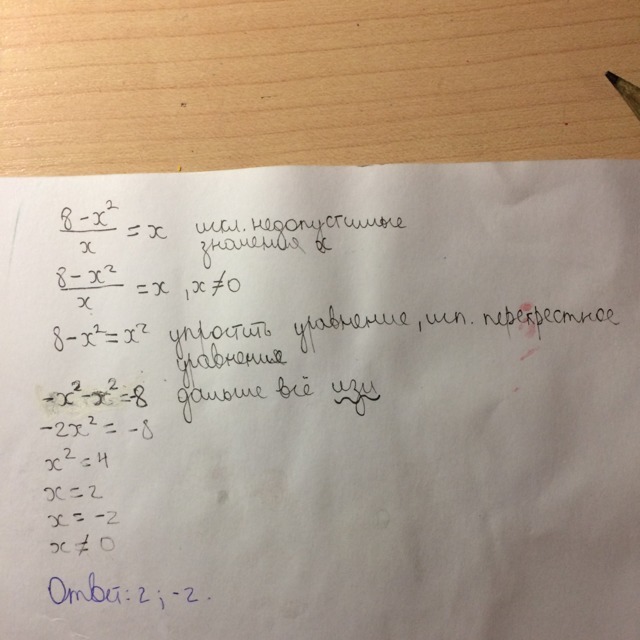 8-x²/x = x искл. недопустимые
значения x
8-x²/x = x , x≠0
8-x²=x² упростить уравнение, исп. перекрестное
уравнение
-x²-x²=-8 дальше всё изи
-2x²=-8
x²=4
x=2
x=-2
x≠0
Ответ: 2; -2.